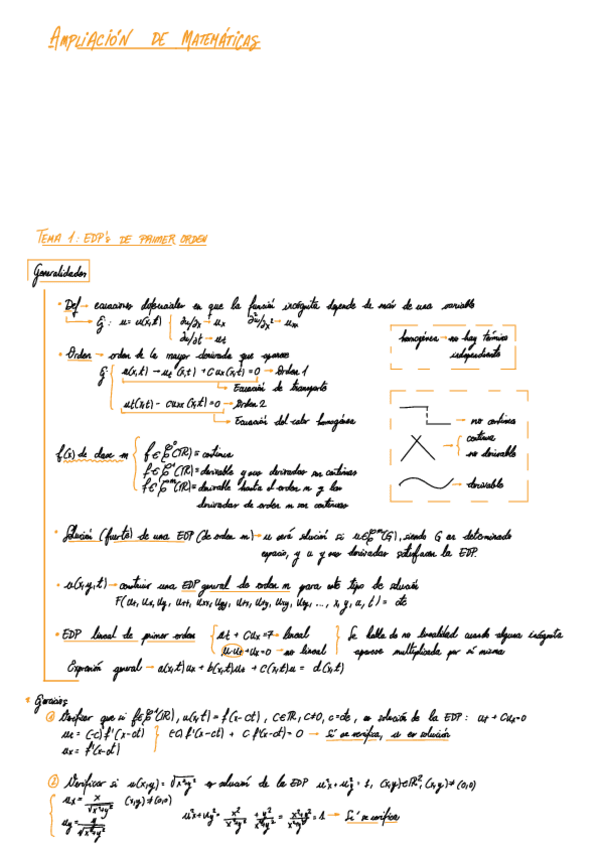 AMPLIACIÓN DE MATEMÁTICAS
TEMA 1: EDP's DE PRIMER ORDEN
Generalidades
• Def → ecuaciones diferenciales en que la función incógnita depende de más de una variable
Ej: u = u(x,t) { ∂u/∂x → ux ∂²u/∂x² →
∂u/∂t → ut
• Orden → orden de la mayor derivada que aparece
homogénea → no hay término
independiente
Ej: u(x,t) → ut(x,t) + cux(x,t) = 0 → Orden 1
Ecuación de transporte
ut(x,t) - cuxx(x,t) = 0 → Orden 2
Ecuación del calor homogénea
→ no continua
→ { continua
no derivable
→ derivable
f(x) de clase m { f∈C⁰(ℝ) = continua
f∈C¹(ℝ) = derivable y sus derivadas son continuas
f∈Cᵐ(ℝ) = derivable hasta el orden m y las
derivadas de orden m son continuas
• Solución (fuerte) de una EDP (de orden m) → u será solución si u∈Cᵐ(G), siendo G un determinado
espacio, y u y sus derivadas satisfacen la EDP.
• u(x,y,t) → construir una EDP general de orden m para este tipo de solución
F(ut, ux, uy, utt, uxx, uyy, utx, uty, uxy, ..., x, y, u, t) = cte
• EDP lineal de primer orden { ut + cux = 7 → lineal } Se habla de no linealidad cuando alguna incógnita
u ut + ux = 0 → no lineal } aparece multiplicada por sí misma
Expresión general → a(x,t)ux + b(x,t)ut + c(x,t)u = d(x,t)
• Ejercicios
① Verificar que si f∈C¹(ℝ), u(x,t) = f(x-ct), c∈ℝ, c≠0, c=cte, es solución de la EDP: ut + cux = 0
ut = (-c) f'(x-ct) } (-c) f'(x-ct) + c f'(x-ct) = 0 → Sí se verifica, u es solución
ux = f'(x-ct)
② Verificar si u(x,y) = √x²+y² es solución de la EDP u²x + u²y = 1, (x,y)∈ℝ², (x,y)≠(0,0)
ux = x/√x²+y² (x,y)≠(0,0)
uy = y/√x²+y²
u²x + u²y = x²/x²+y² + y²/x²+y² = x²+y²/x²+y² = 1 → Sí se verifica